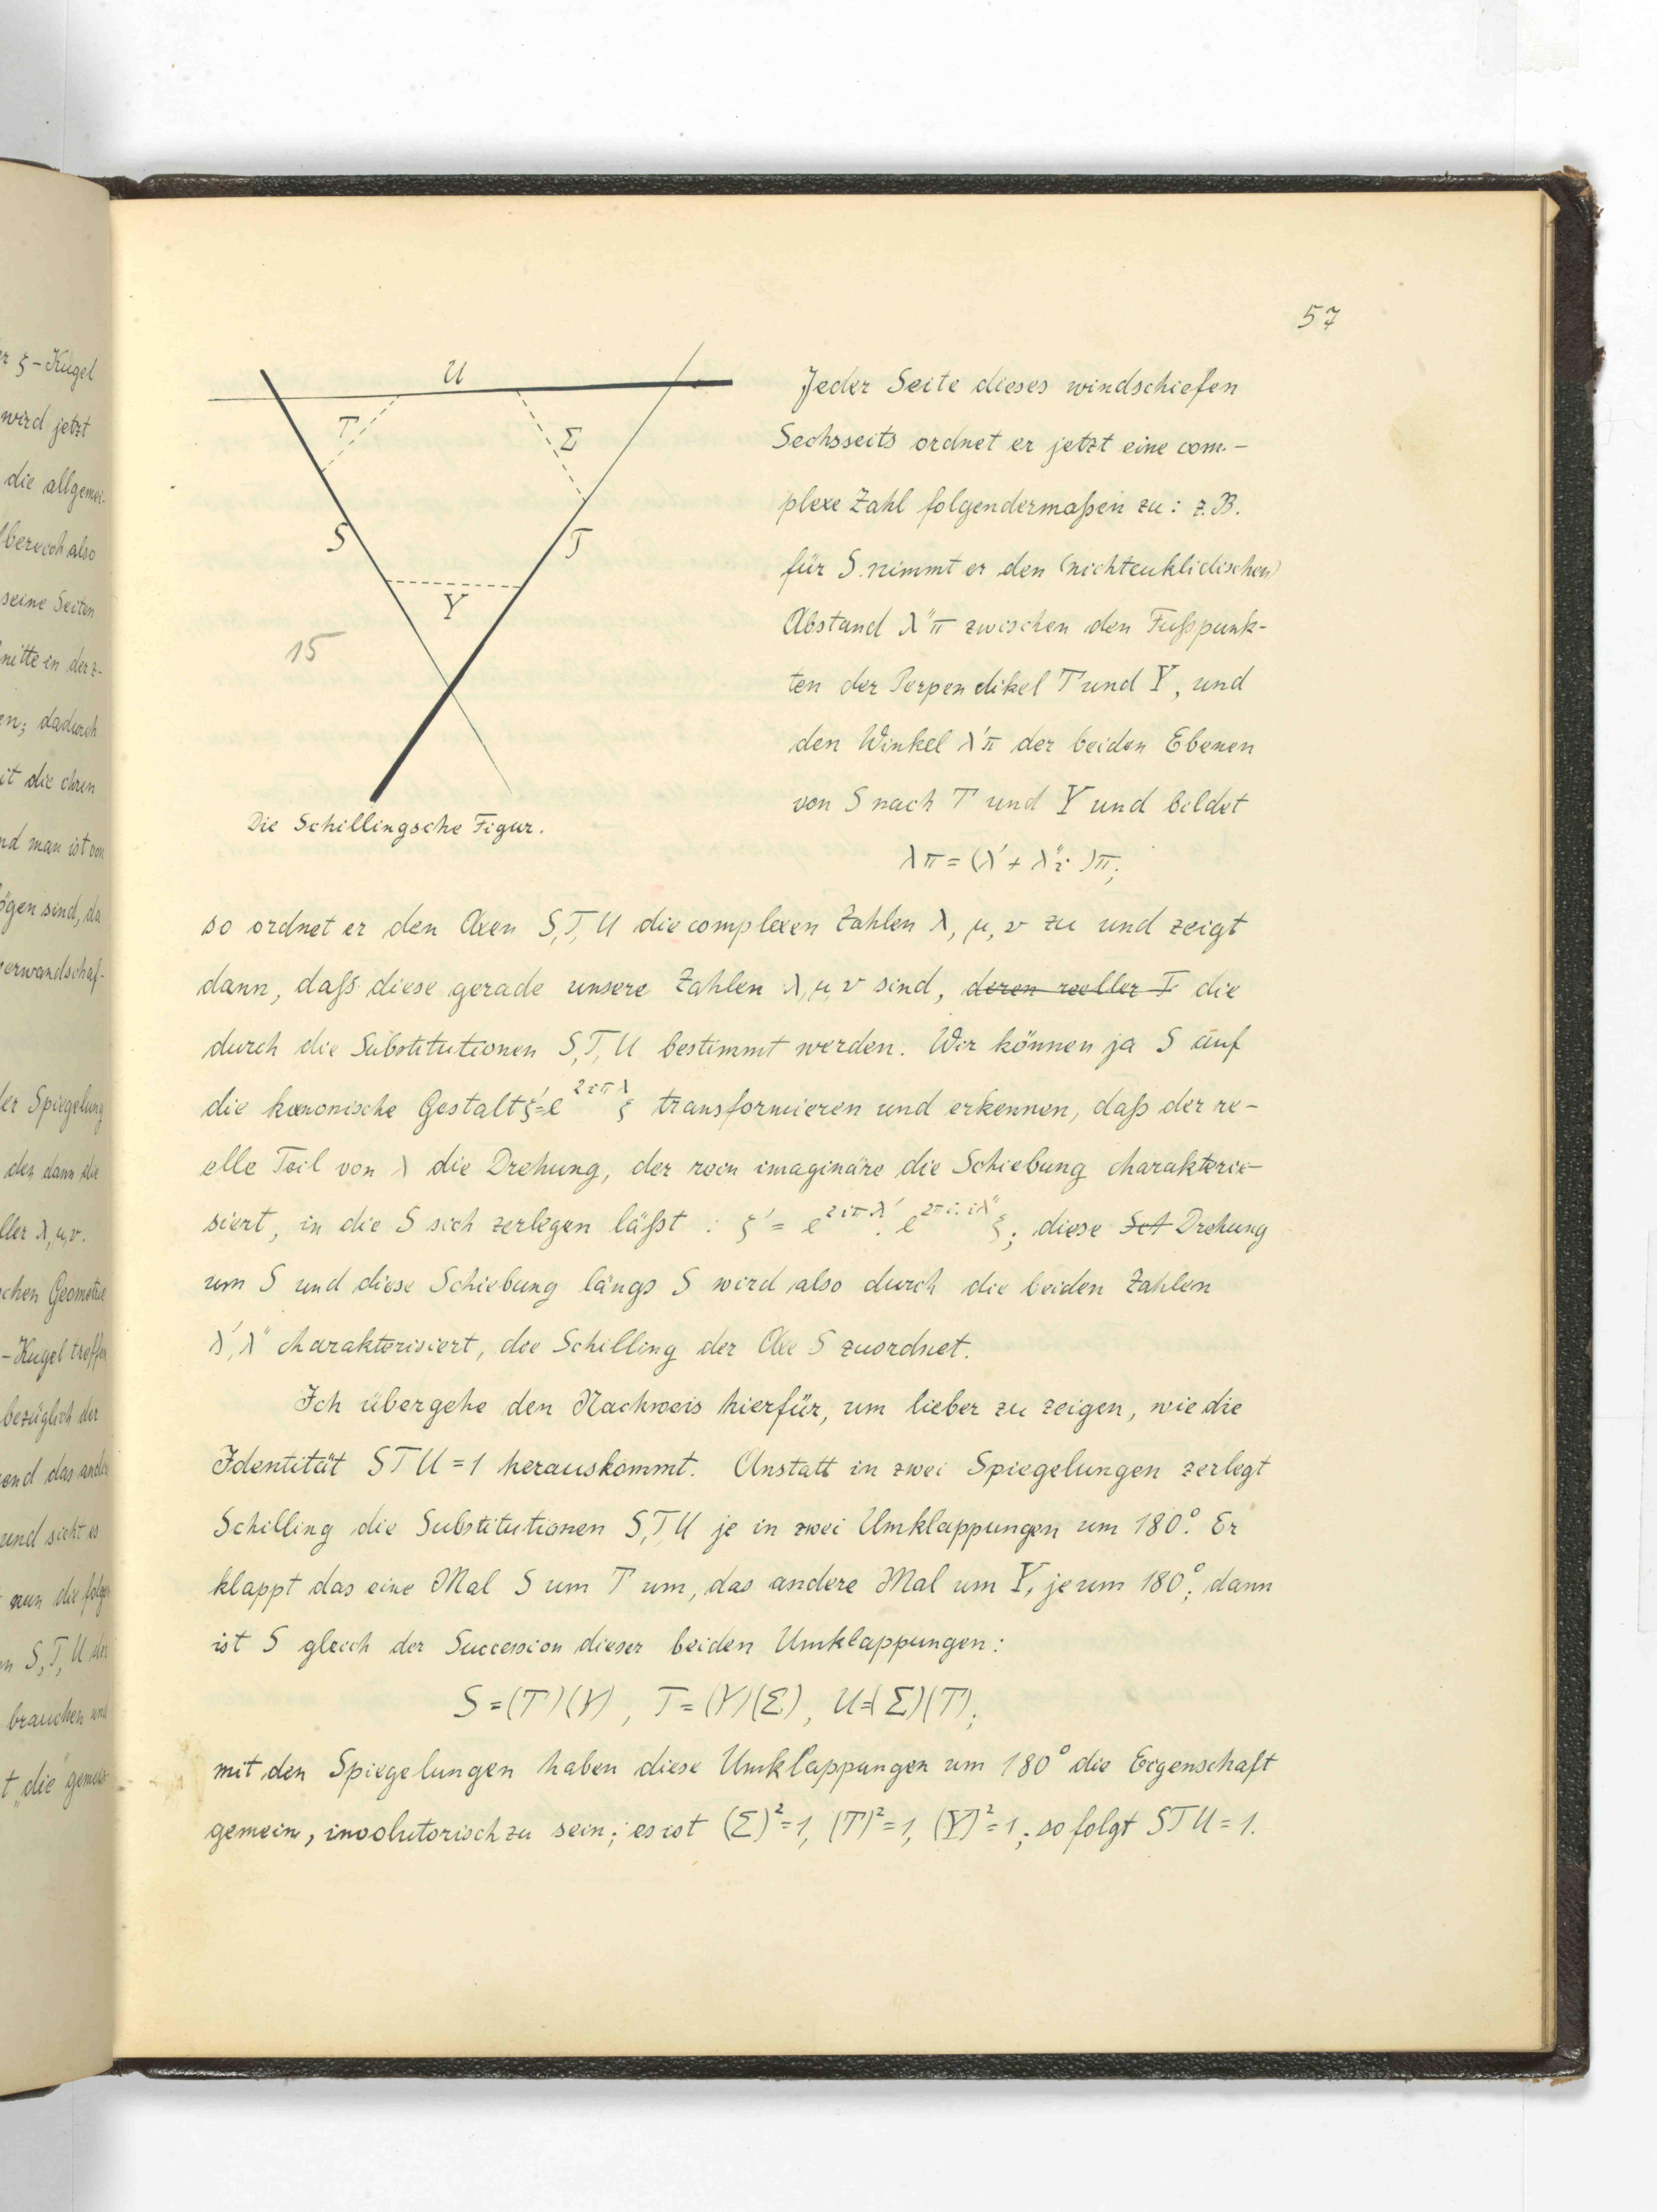 57
U
T
Σ
S
T
Y
15
Die Schillingsche Figur.
Jeder Seite dieses windschiefen
Sechsseits ordnet er jetzt eine com-
plexe Zahl folgendermaßen zu: z.B.
für S. nimmt er den (nichteuklidischen)
Abstand λ''π zwischen den Fußpunk-
ten der Perpendikel T und Y, und
den Winkel λ'π der beiden Ebenen
von S nach T und Y und bildet
λπ = (λ' + λ''i)π;
so ordnet er den Axen S, T, U die complexen Zahlen λ, μ, ν zu und zeigt
dann, daß diese gerade unsere Zahlen λ, μ, ν sind, deren reeller T die
durch die Substitutionen S, T, U bestimmt werden. Wir können ja S auf
die kanonische Gestalt ξ' = e^{2iπλ} ξ transformieren und erkennen, daß der re-
elle Teil von λ die Drehung, der rein imaginäre die Schiebung charakteri-
siert, in die S sich zerlegen läßt : ξ' = e^{2iπλ'} · e^{2πi·iλ''} ξ; diese Sct Drehung
um S und diese Schiebung längs S wird also durch die beiden Zahlen
λ', λ'' charakterisiert, die Schilling der Axe S zuordnet.
Ich übergehe den Nachweis hierfür, um lieber zu zeigen, wie die
Identität STU = 1 herauskommt. Anstatt in zwei Spiegelungen zerlegt
Schilling die Substitutionen S, T, U je in zwei Umklappungen um 180°. Er
klappt das eine Mal S um T um, das andere Mal um Y, je um 180°; dann
ist S gleich der Succession dieser beiden Umklappungen:
S = (T)(Y), T = (Y)(Σ), U = (Σ)(T);
mit den Spiegelungen haben diese Umklappungen um 180° die Eigenschaft
gemein, involutorisch zu sein; es ist (Σ)² = 1, (T)² = 1, (Y)² = 1; so folgt STU = 1.
er ξ-Kugel
wird jetzt
die allgemei-
bereich also
seine Seiten
nitte in der z-
en; dadurch
it die ohren
nd man ist von
ögen sind, da
erwandschaf-
der Spiegelung
den dann die
ller λ, μ, ν.
chen Geometrie
-Kugel treffen
bezüglich der
end das ande
und sieht es
nun die folge
en S, T, U der
brauchen und
t „die "gemei